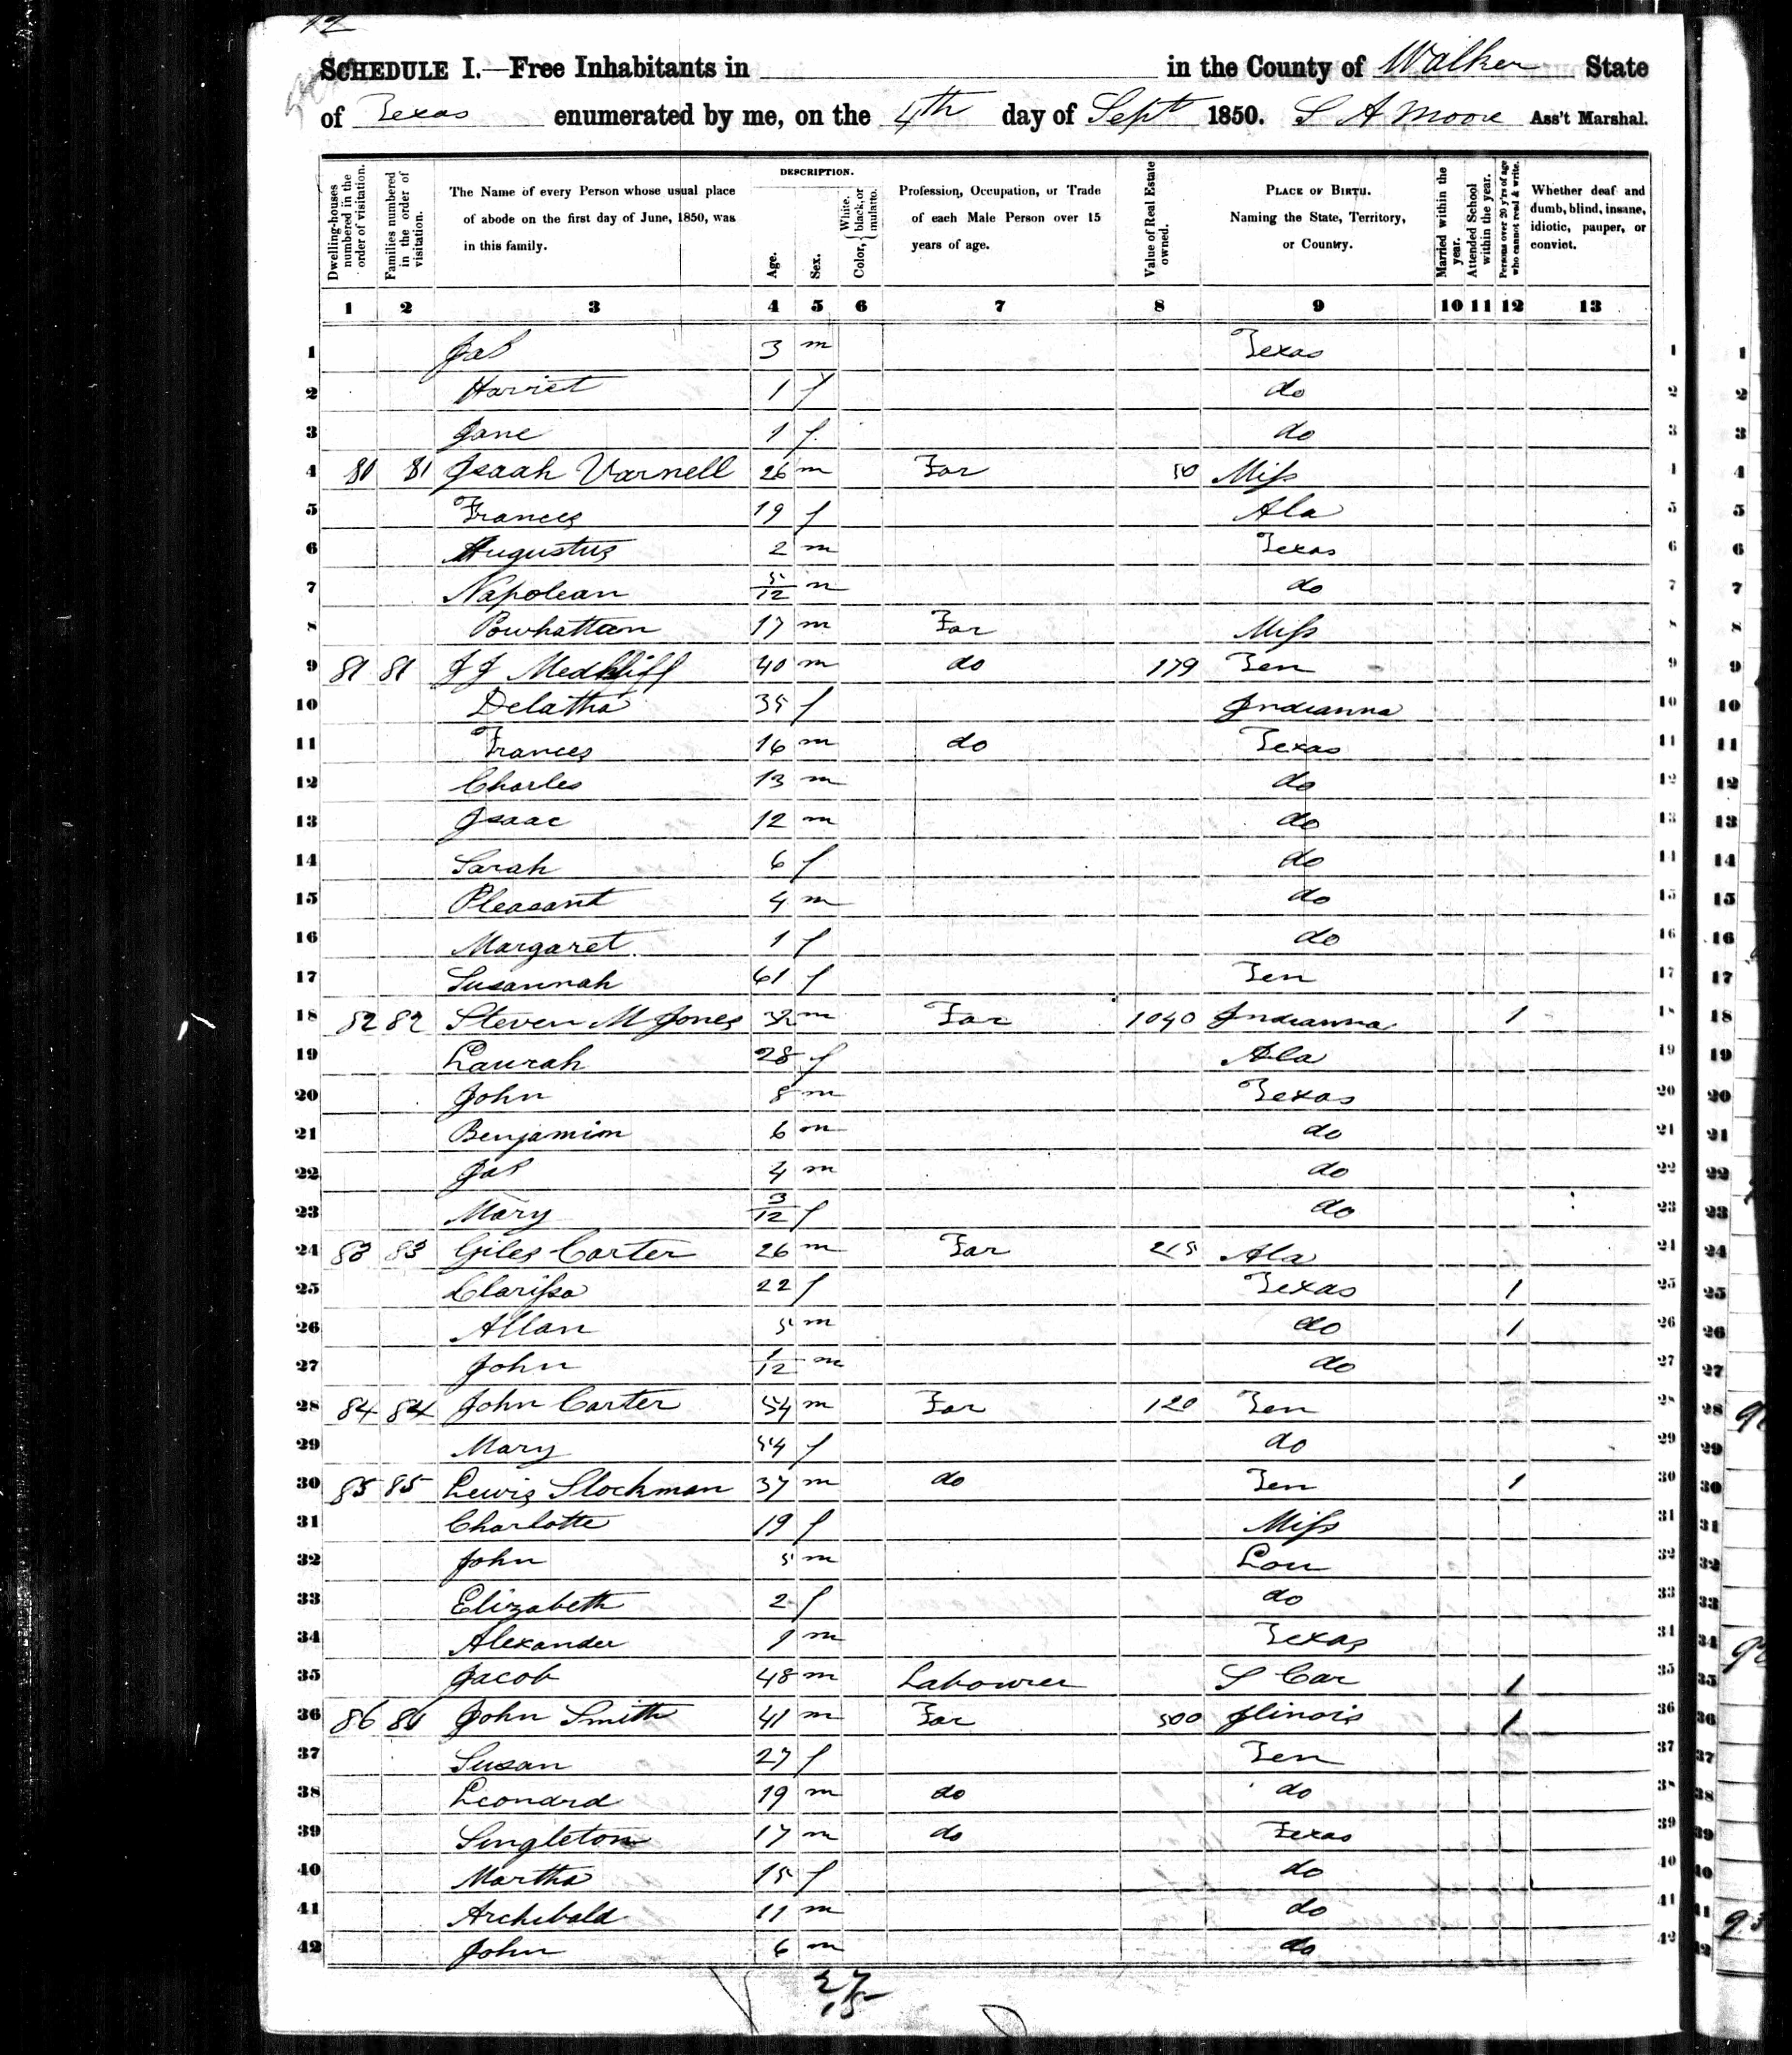 SCHEDULE I.—Free Inhabitants in in the County of Walker State
of Texas enumerated by me, on the 4th day of Sept 1850. S A Moore Ass't Marshal.
Dwelling-houses numbered in the order of visitation.
Families numbered in the order of visitation.
The Name of every Person whose usual place of abode on the first day of June, 1850, was in this family.
DESCRIPTION.
Age.
Sex.
Color, { White, black, or mulatto.
Profession, Occupation, or Trade of each Male Person over 15 years of age.
Value of Real Estate owned.
PLACE OF BIRTH. Naming the State, Territory, or Country.
Married within the year.
Attended School within the year.
Persons over 20 y'rs of age who cannot read & write.
Whether deaf and dumb, blind, insane, idiotic, pauper, or convict.
1 2 3 4 5 6 7 8 9 10 11 12 13
1 Jas 3 m Texas 1
2 Harriet 1 f do 2
3 Jane 1 f do 3
4 81 81 Isaah Varnell 26 m Far 50 Miss 4
5 Frances 19 f Ala 5
6 Augustus 2 m Texas 6
7 Napolean 5/12 m do 7
8 Powhattan 17 m Far Miss 8
9 81 81 J J Medkliff 40 m do 179 Ten 9
10 Delatha 35 f Indianna 10
11 Frances 16 m do Texas 11
12 Charles 13 m do 12
13 Isaac 12 m do 13
14 Sarah 6 f do 14
15 Pleasant 4 m do 15
16 Margaret 1 f do 16
17 Susannah 61 f Ten 17
18 82 82 Steven M Jones 32 m Far 1040 Indianna 1 18
19 Laurah 28 f Ala 19
20 John 8 m Texas 20
21 Benjamin 6 m do 21
22 Jas 4 m do 22
23 Mary 3/12 f do 23
24 83 83 Giles Carter 26 m Far 215 Ala 24
25 Clarissa 22 f Texas 1 25
26 Allan 5 m do 1 26
27 John 1/12 m do 27
28 84 84 John Carter 54 m Far 120 Ten 28
29 Mary 54 f do 29
30 85 85 Lewis Slockman 37 m do Ten 1 30
31 Charlotte 19 f Miss 31
32 John 5 m Lou 32
33 Elizabeth 2 f do 33
34 Alexander 1 m Texas 34
35 Jacob 48 m Labourer S Car 1 35
36 86 86 John Smith 41 m Far 500 Ilinois 1 36
37 Susan 27 f Ten 37
38 Leonard 19 m do do 38
39 Singleton 17 m do Texas 39
40 Martha 15 f do 40
41 Archibald 11 m do 41
42 John 6 m do 42
27
15